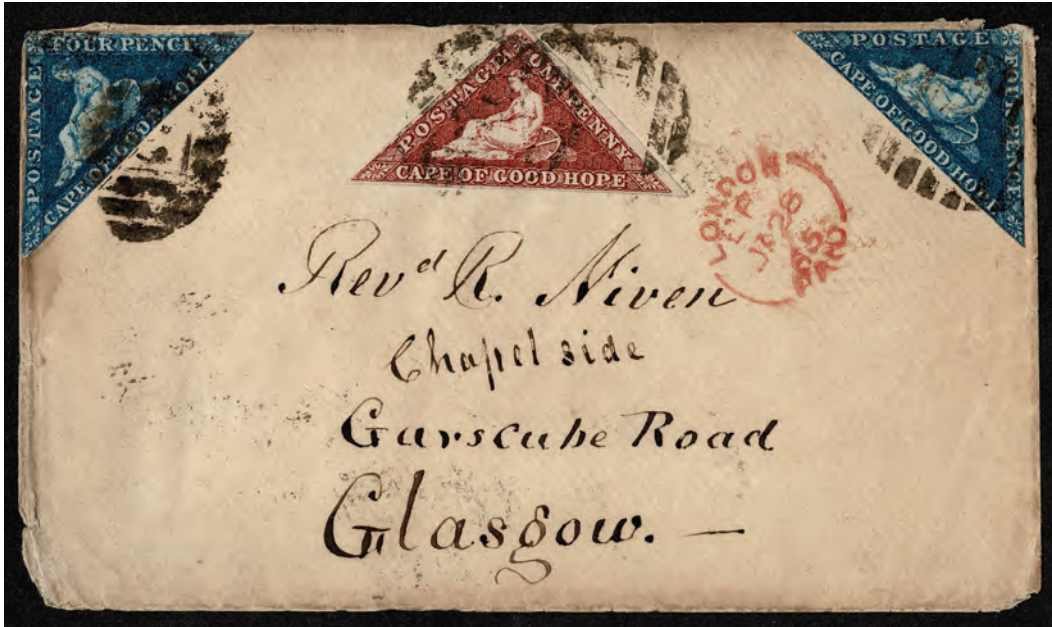 POSTAGE
FOUR PENCE
CAPE OF GOOD HOPE
POSTAGE
ONE PENNY
CAPE OF GOOD HOPE
POSTAGE
FOUR PENCE
CAPE OF GOOD HOPE
LONDON
JA 26
PAID
Revd R. Niven
Chapel side
Garscube Road
Glasgow. —